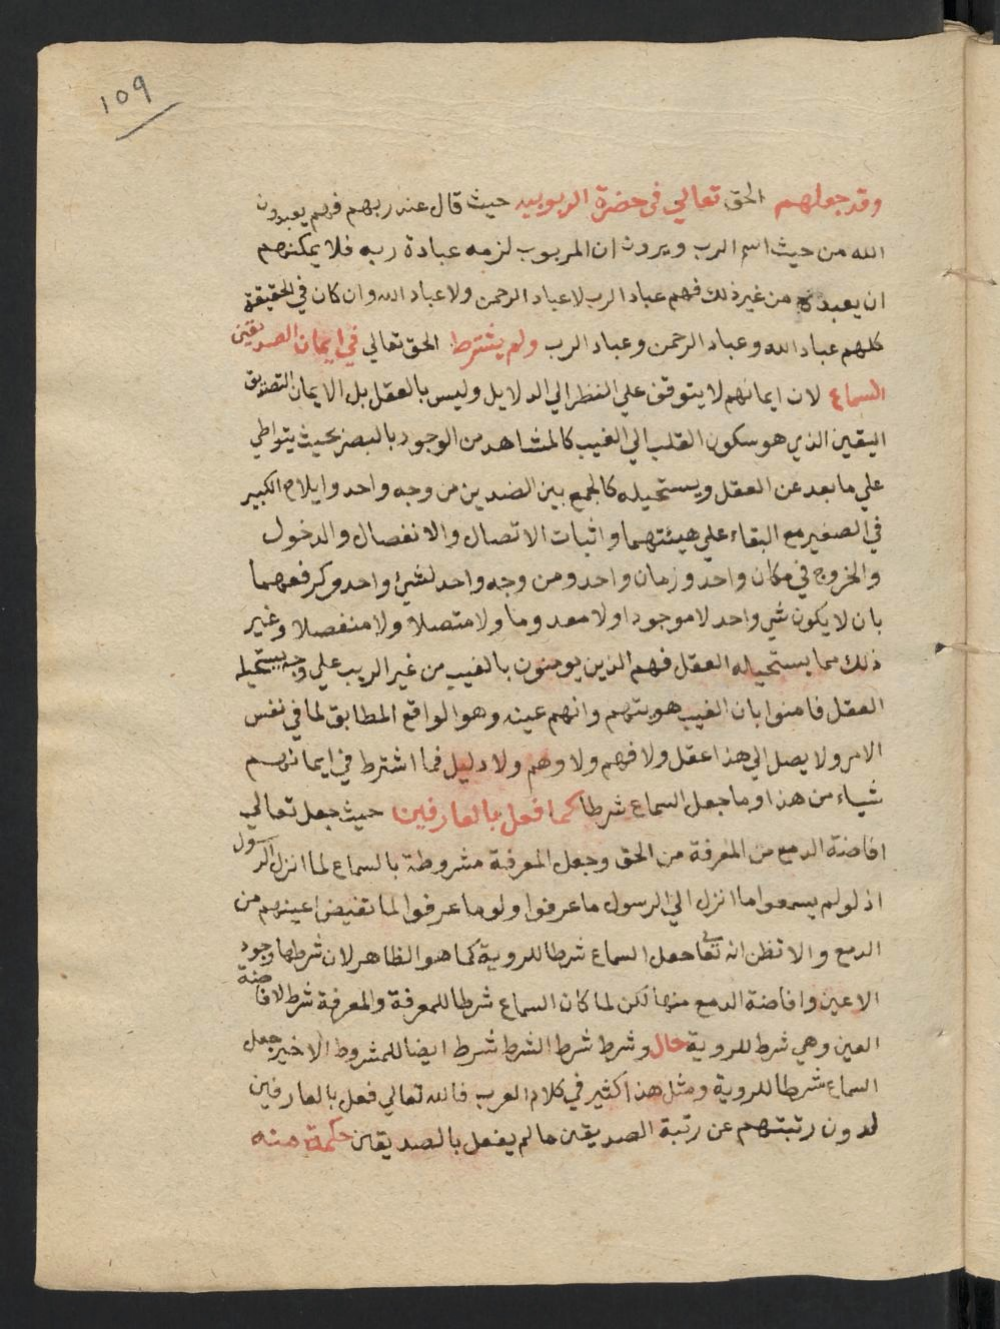 ١٥٩
وقد جعلهم الحق تعالي في حضرة الربوبيه حيث قال عند ربهم فهم يعبدون
الله من حيث اسم الرب ويرون ان المربوب لزمه عبادة ربه فلا يمكنهم
ان يعبدوه من غير ذلك فهم عباد الرب لا عباد الرحمن ولا عباد الله وان كان في الحقيقة
كلهم عباد الله وعباد الرحمن وعباد الرب ولم يشترط الحق تعالي في ايمان الصديقين
السماع لان ايمانهم لا يتوقف علي النظر الي الدلايل وليس بالعقل بل الايمان التصديق
اليقين الذي هو سكون القلب الي الغيب كالمشاهد من الوجود بالبصر بحيث يتواطي
علي ما بعد عن العقل ويستحيله كالجمع بين الضدين من وجه واحد وايلاج الكبير
في الصغير مع البقاء علي هيئتهما واثبات الاتصال والانفصال والدخول
والخروج في مكان واحد وزمان واحد ومن وجه واحد لشيء واحد وكرفعهما
بان لا يكون شي واحد لا موجودا ولا معدوما ولا متصلا ولا منفصلا وغير
ذلك مما يستحياله العقل فهم الذين يومنون بالغيب من غير الريب علي وجه يستحيله
العقل فامنوا بان الغيب هويتهم وانهم عينه وهو الواقع المطابق لما في نفس
الامر ولا يصل الي هذا عقل ولا فهم ولا وهم ولا دليل فما اشترط في ايمانهم
شياء من هذا وما جعل السماع شرطا كما فعل بالعارفين حيث جعل تعالي
افاضة الدمع من المعرفة من الحق وجعل المعرفة مشروطة بالسماع لما انزل الي الرسول
اذ لو لم يسمعوا ما انزل الي الرسول ما عرفوا ولو ما عرفوا لما تفيض اعينهم من
الدمع والا تظن انه تعالي جعل السماع شرطا للروية كما هو الظاهر لان شرطها وجود
الاعين وافاضة الدمع منها لكن لما كان السماع شرطا للمعرفة والمعرفة شرط لافاضة
العين وهي شرط للروية حال وشرط شرط الشرط شرط ايضا للمشروط الاخير جعل
السماع شرطا للروية ومثل هذا كثير في كلام العرب فالله تعالي فعل بالعارفين
لدون رتبتهم عن رتبة الصديقين ما لم يفعل بالصديقين حكمة منه